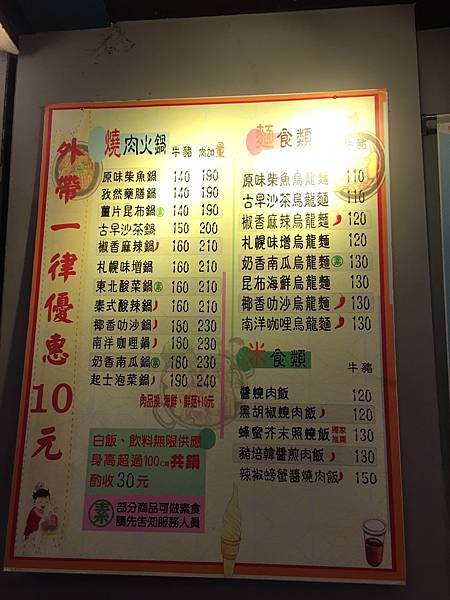 外帶一律優惠10元
燒肉火鍋 牛豬 肉加量
原味柴魚鍋 140 190
孜然藥膳鍋 140 190
薑片昆布鍋 素 140 190
古早沙茶鍋 150 200
椒香麻辣鍋 160 210
札幌味增鍋 160 210
東北酸菜鍋 素 160 210
泰式酸辣鍋 160 210
椰香叻沙鍋 180 230
南洋咖哩鍋 180 230
奶香南瓜鍋 素 180 230
起士泡菜鍋 190 240
肉品換 海鮮、鮮菇+10元
白飯、飲料無限供應
身高超過100cm共鍋
酌收30元
素 部分商品可做素食
請先告知服務人員
麵食類 牛豬
原味柴魚烏龍麵 110
古早沙茶烏龍麵 110
椒香麻辣烏龍麵 120
札幌味增烏龍麵 120
奶香南瓜烏龍麵 素 130
昆布海鮮烏龍麵 130
椰香叻沙烏龍麵 130
南洋咖哩烏龍麵 130
米食類 牛豬
醬燒肉飯 120
黑胡椒燒肉飯 120
蜂蜜芥末照燒飯 獨家推薦 130
豬培韓醬煎肉飯 130
辣椒螃蟹醬燒肉飯 150